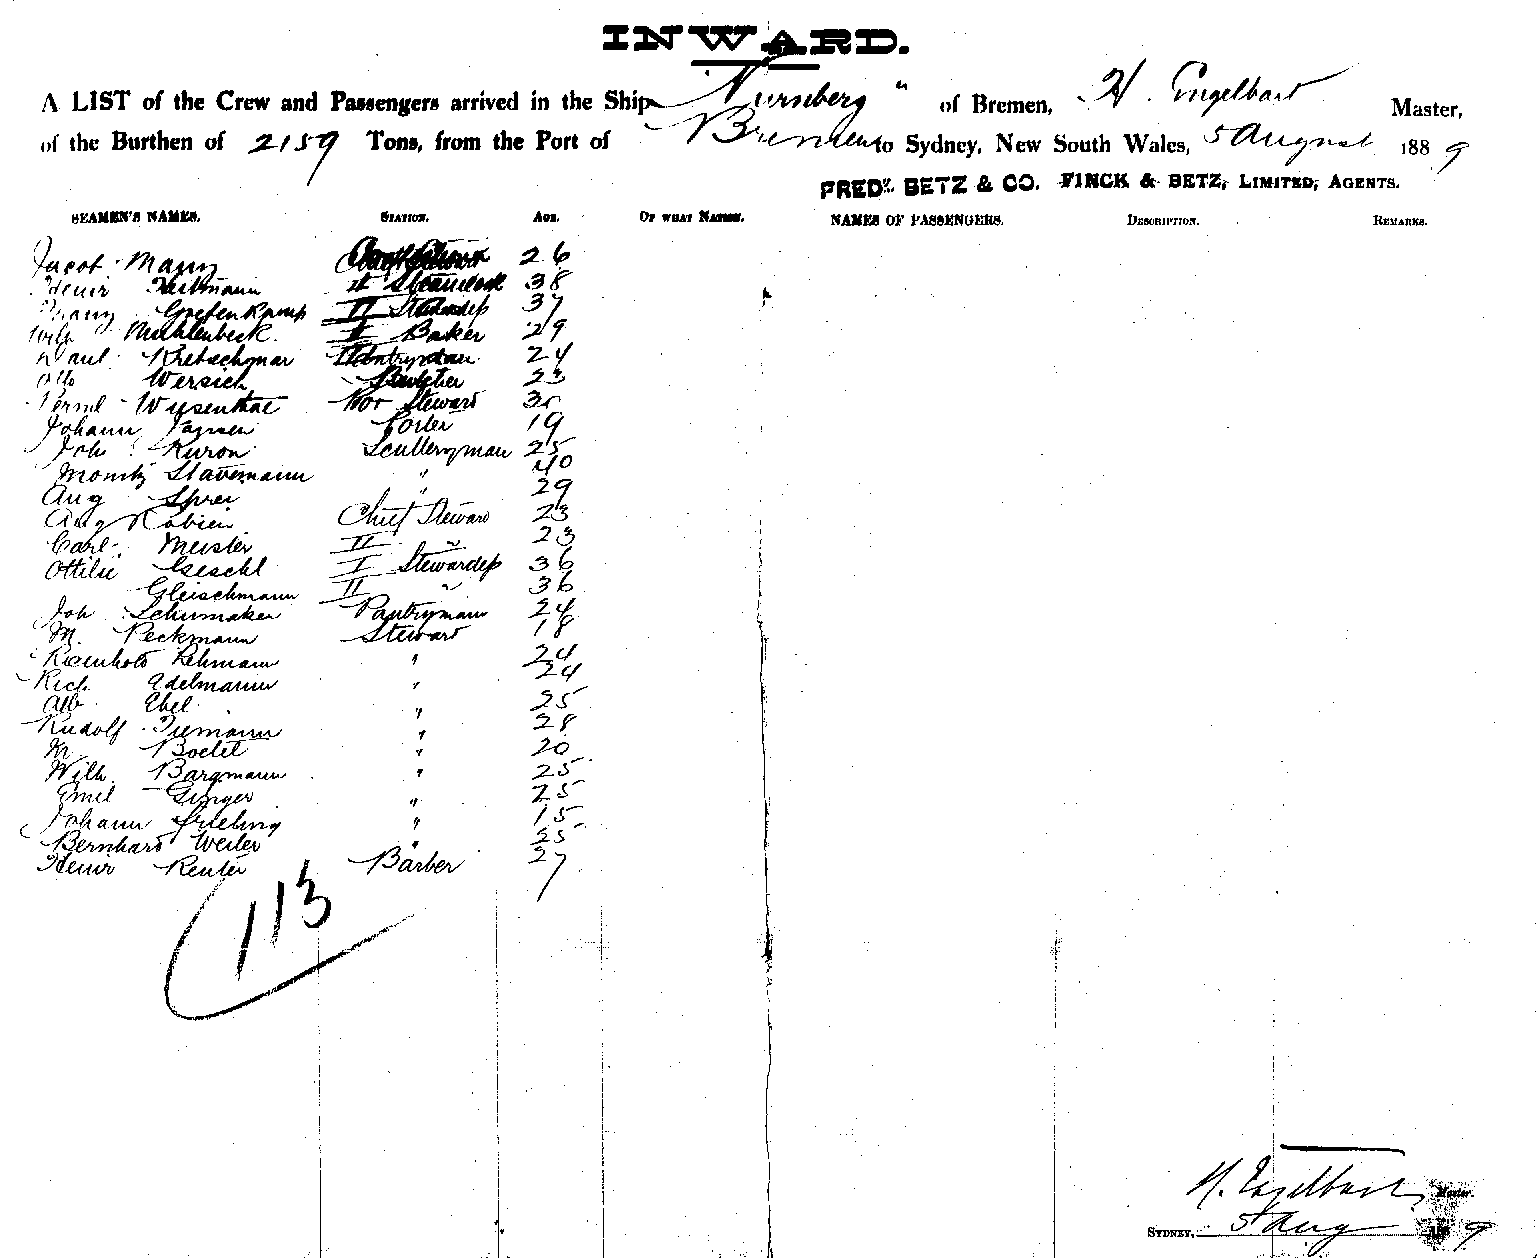 INWARD.
A LIST of the Crew and Passengers arrived in the Ship "Nurnberg" of Bremen, H. Engelbart Master,
of the Burthen of 2159 Tons, from the Port of Bremen to Sydney, New South Wales, 5 August 1889
FRED. BETZ & CO. FINCK & BETZ, LIMITED, AGENTS.
SEAMEN'S NAMES. STATION. AGE. OF WHAT NATION. NAMES OF PASSENGERS. DESCRIPTION. REMARKS.
Jacob 26
Heinr 38
Franz II 37
Wilh Muhlenbeck II Baker 29
Paul Kretschmar 24
Otto Wersich 23
Wysenthal Steward
Johann Jansen Porter 19
Joh Kuron Sculleryman 25
Moritz Stavemann " 40
Aug Sprei " 29
Aug Robien Chief Steward 23
Carl Meister II " 23
Ottilie Geschl I Stewardess 36
Gleischmann II " 36
Joh Schumaker Pantryman 24
M. Peckmann Steward 18
Reinhold Lehmann " 24
Rich Edelmann " 24
Alb Ebel " 25
Rudolf Tiemann " 28
M Boelet " 20
Wilh Bargmann " 25
Emil Ginger " 25
Johann Frieling " 15
Bernhard Weiler " 25
Heinr Reuter Barber 27
113
H. Engelbart Master.
SYDNEY, 5 Aug 1889